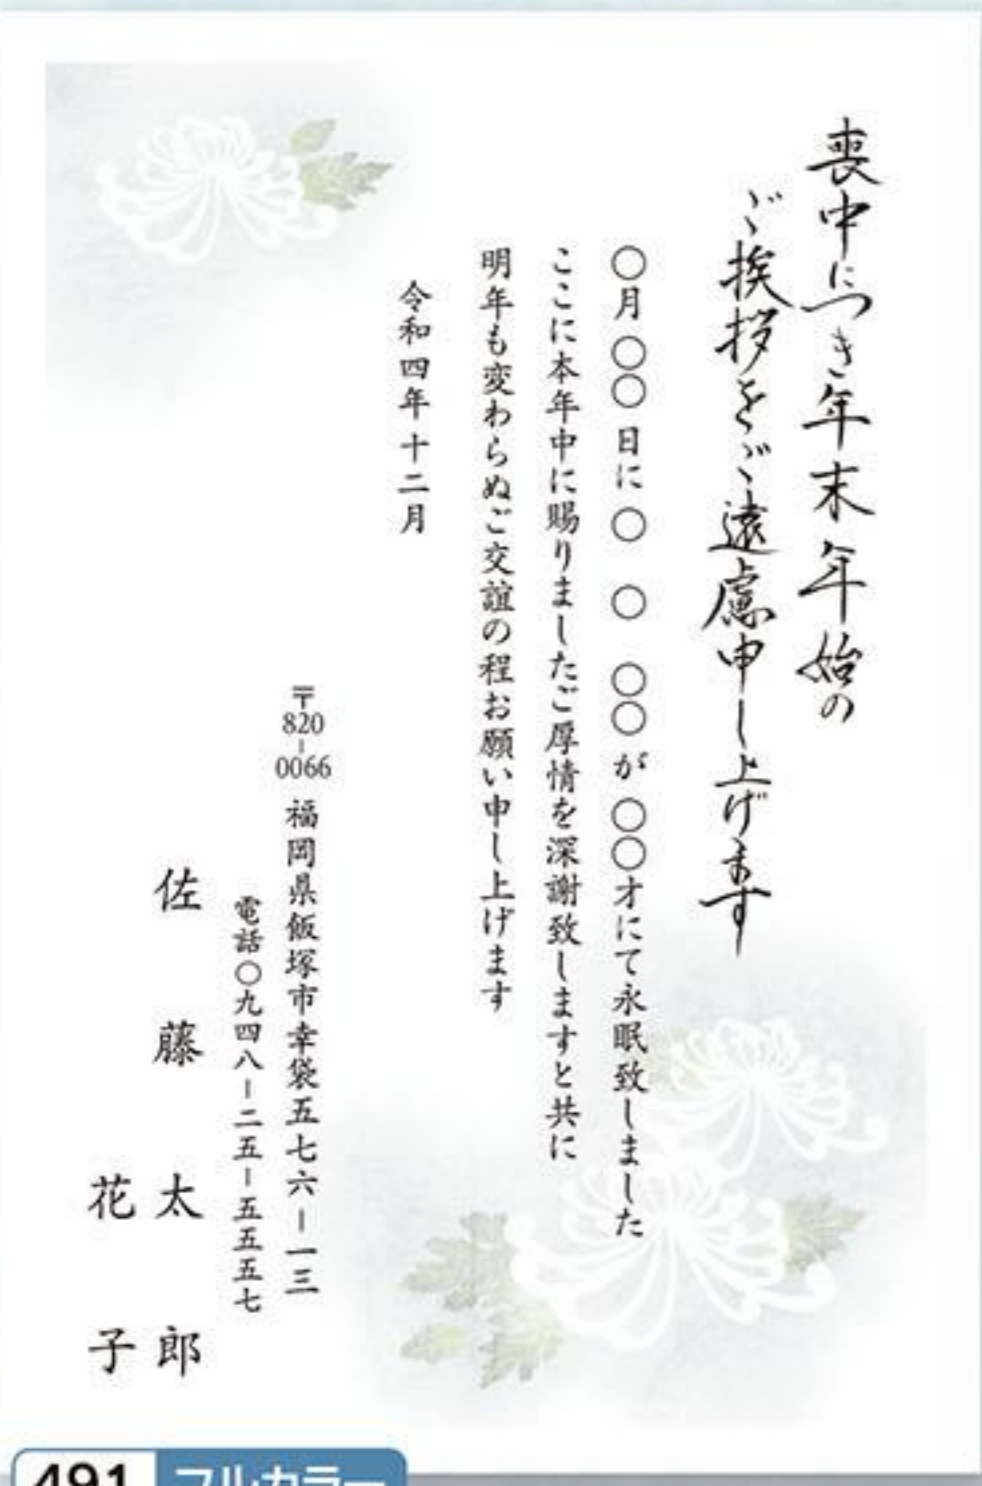 喪中につき年末年始の
ご挨拶をご遠慮申し上げます
〇月〇〇日に〇　〇　〇〇が〇〇才にて永眠致しました
ここに本年中に賜りましたご厚情を深謝致しますと共に
明年も変わらぬご交誼の程お願い申し上げます
令和四年十二月
〒820-0066 福岡県飯塚市幸袋五七六ー一三
電話〇九四八ー二五ー五五五七
佐藤太郎
花子
491 フルカラー